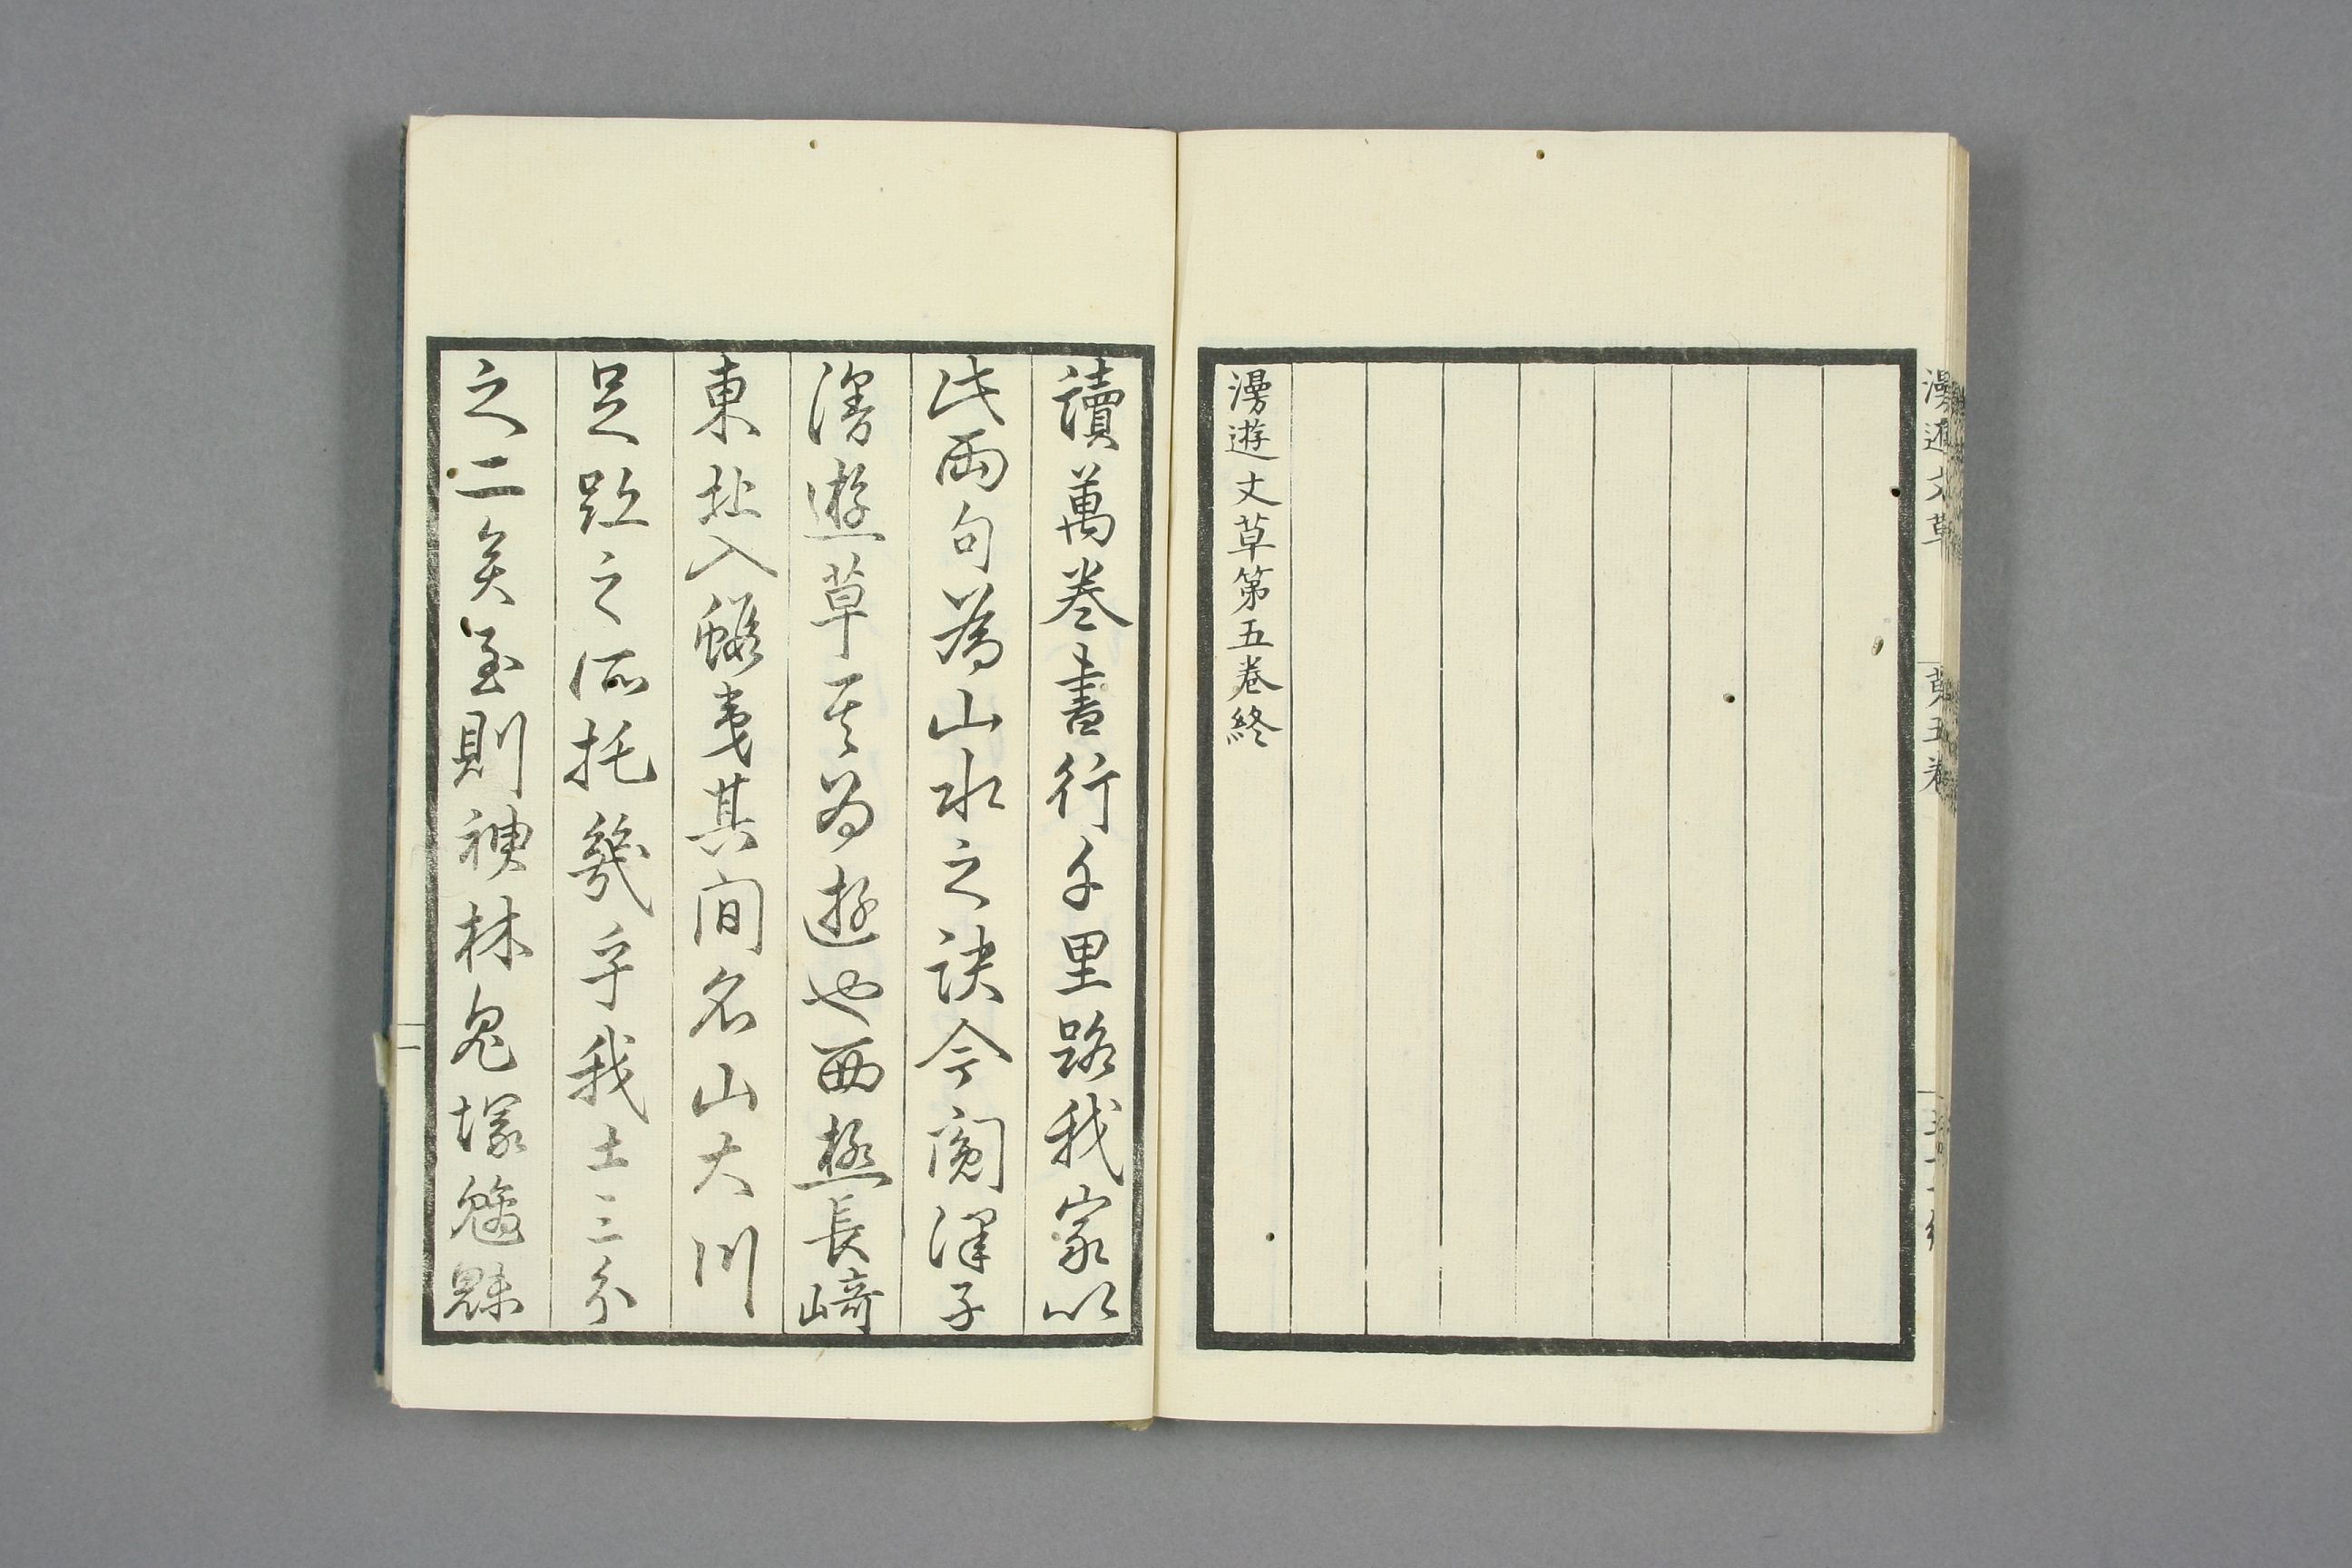 漫遊文草
第五卷
漫遊文草第五卷終
讀萬卷書行千里路我家以
此兩句為山水之訣今閱澤子
漫遊草其為遊也西極長崎
東北入蝦夷其間名山大川
足跡之所托幾乎我土三分
之二矣至則神林鬼塚魑魅